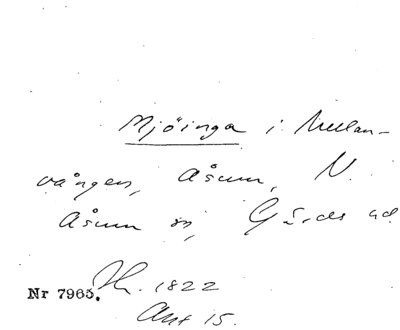 Mjöinga i Mellan-
vången, Åsum, N.
Åsum sn, Gärds hd
Nr 7965. 1822
Akt 15.